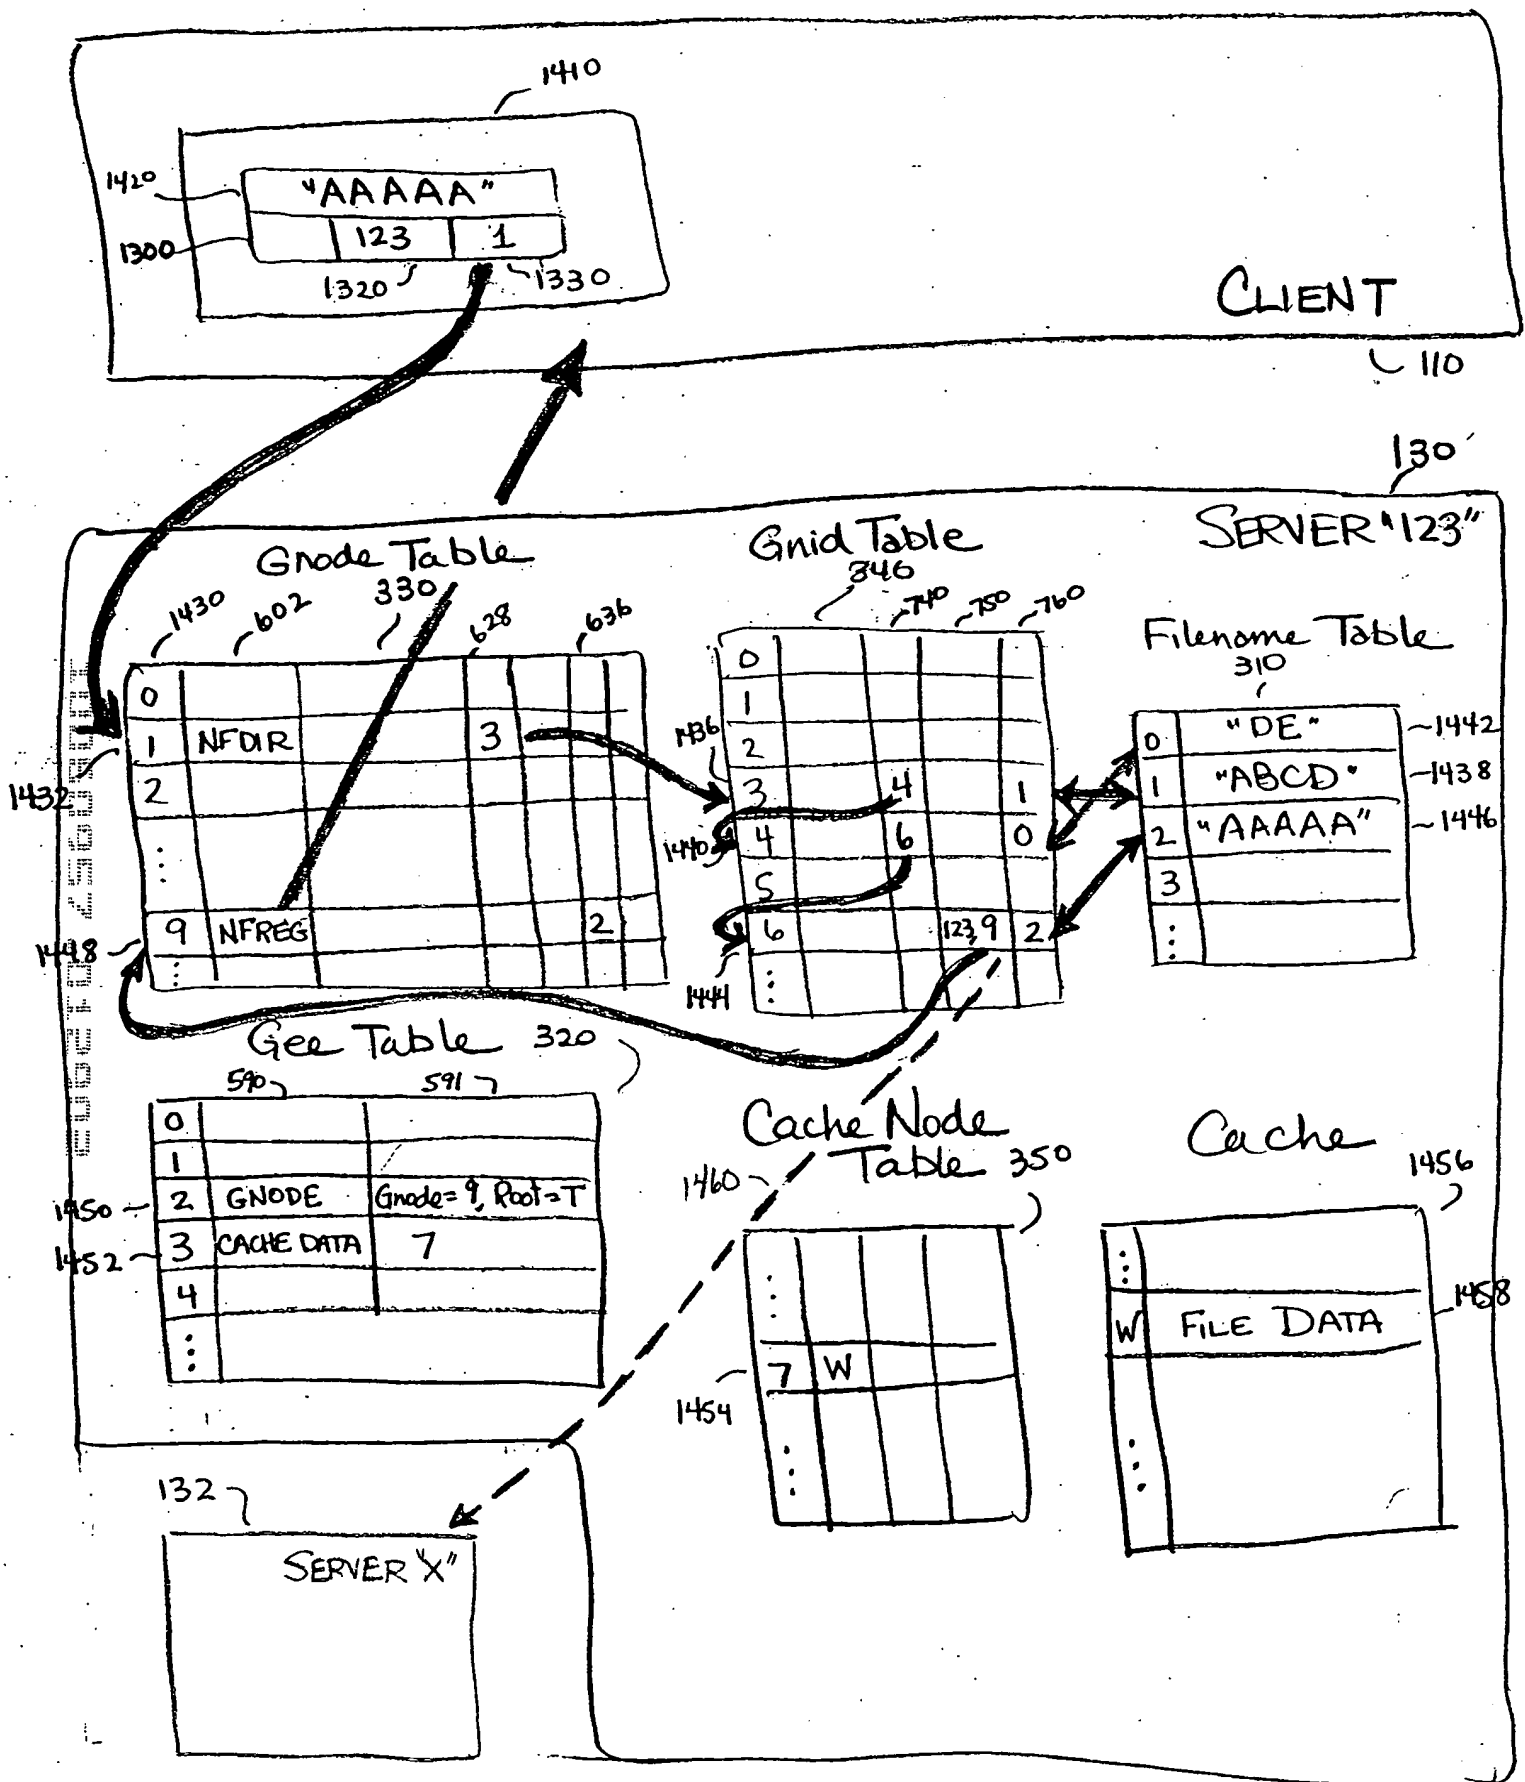 1410
1420
"AAAAA"
1300
123 1
1320 1330
CLIENT
110
130
SERVER "123"
Gnode Table
330
1430 602 628 636
0
1 NFDIR 3
2
⋮
9 NFREG 2
⋮
1432
1448
Gnid Table
346
740 750 760
0
1
2
3 4 1
4 6 0
5
6 123,9 2
⋮
1436
1440
1444
Filename Table
310
0 "DE" 1442
1 "ABCD" 1438
2 "AAAAA" 1446
3
⋮
Gee Table 320
590 591
0
1
1450 2 GNODE Gnode=9, Root=T
1452 3 CACHE DATA 7
4
⋮
Cache Node
Table 350
1460
⋮
7 W
1454
⋮
Cache
1456
⋮
W FILE DATA 1458
⋮
132
SERVER "X"